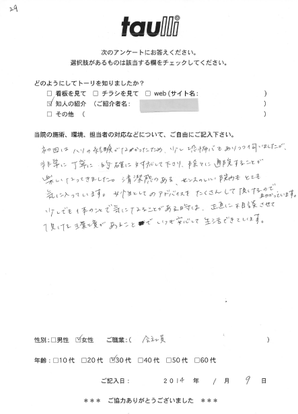 29
taulli
次のアンケートにお答えください。
選択肢があるものは該当する欄をチェックしてください。
どのようにしてトーリを知りましたか?
□看板を見て □チラシを見て □web(サイト名: )
☑知人の紹介 (ご紹介者名: )
□その他 ( )
当院の施術、環境、担当者の対応などについて、ご自由にご記入下さい。
初回は ハリの経験がなかったため、少し恐怖心もありつつ伺いましたが、
非常に丁寧に
清潔感のある、センスのいい院内も とても
気に入っています。 アドバイスも たくさんして頂けるので
少しでも 気になることがある時は、 相談させて
頂ける場所があること で いつも安心して 生活できています。
性別:□男性 ☑女性 ご職業:( 会社員 )
年齢:□10代 □20代 ☑30代 □40代 □50代 □60代
ご記入日: 2014年 1月 9日
*** ご協力ありがとうございました ***